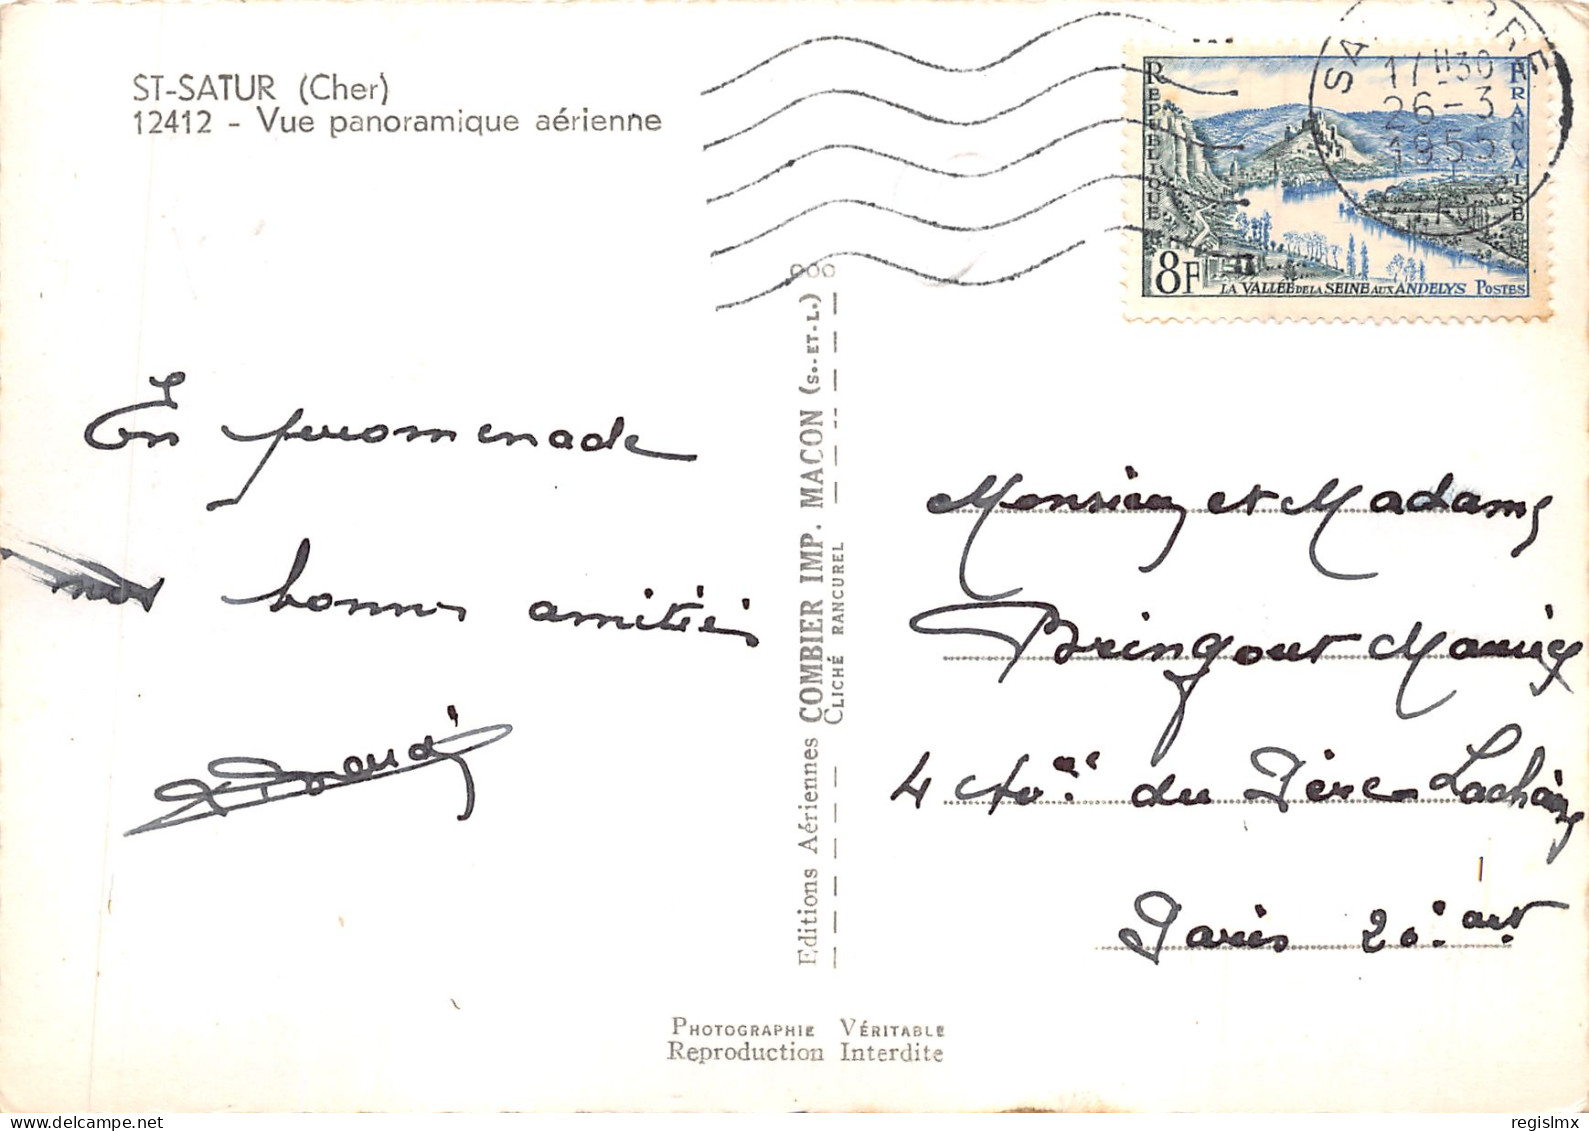 ST-SATUR (Cher)
12412 - Vue panoramique aérienne
En promenade
nos bonnes amitiés
RÉPUBLIQUE FRANÇAISE
8F
LA VALLÉE DE LA SEINE AUX ANDELYS POSTES
17H30
26-3
1955
Editions Aériennes COMBIER IMP. MACON (S.-ET-L.)
CLICHÉ RANCUREL
Monsieur et Madame
Bringout Maurice
4 Av. du Père Lachaise
Paris 20e art
PHOTOGRAPHIE VÉRITABLE
Reproduction Interdite
regislmx